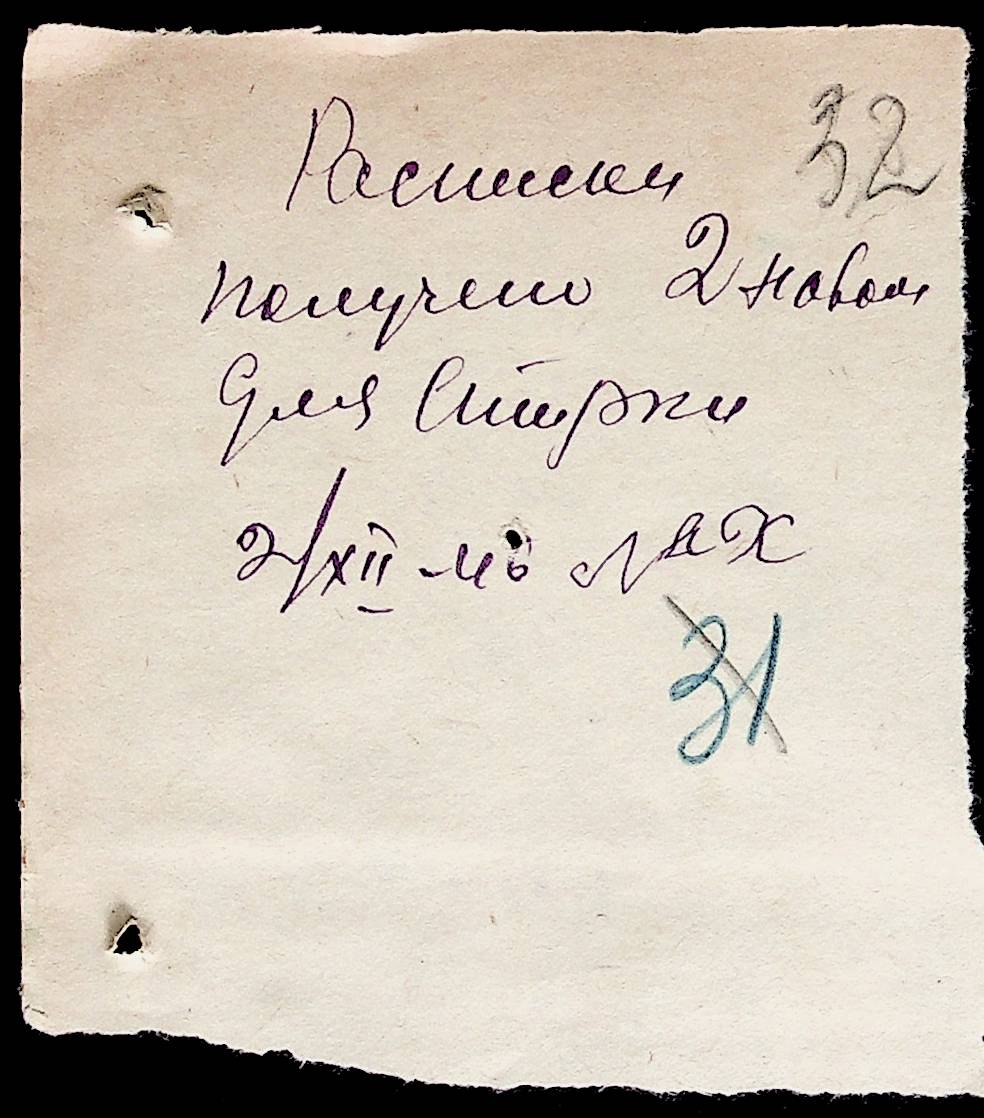 32
Расписки
получено 2 новом
для Стирки
2/XII-46 Лах
31